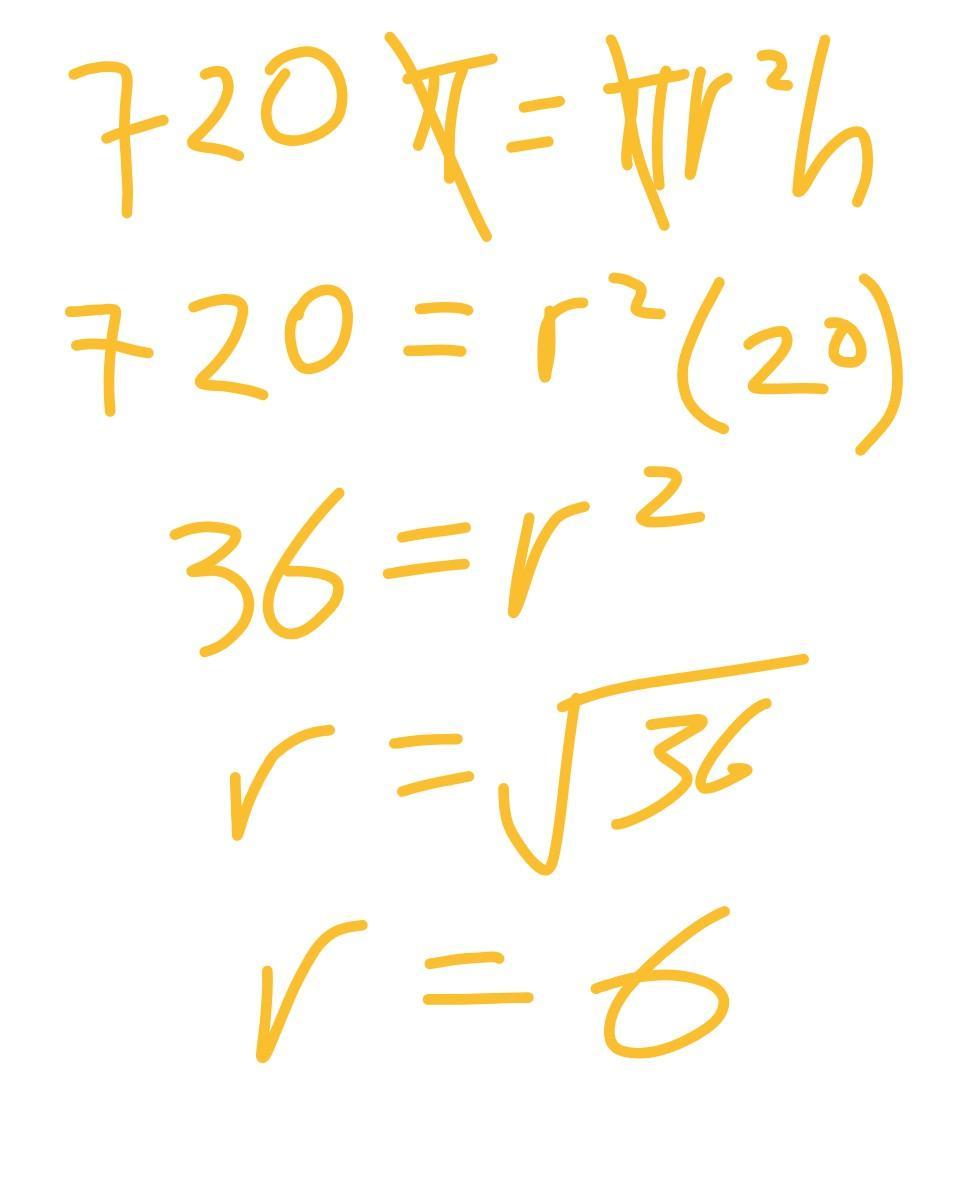 720π = πr²h
720 = r²(20)
36 = r²
r = √36
r = 6